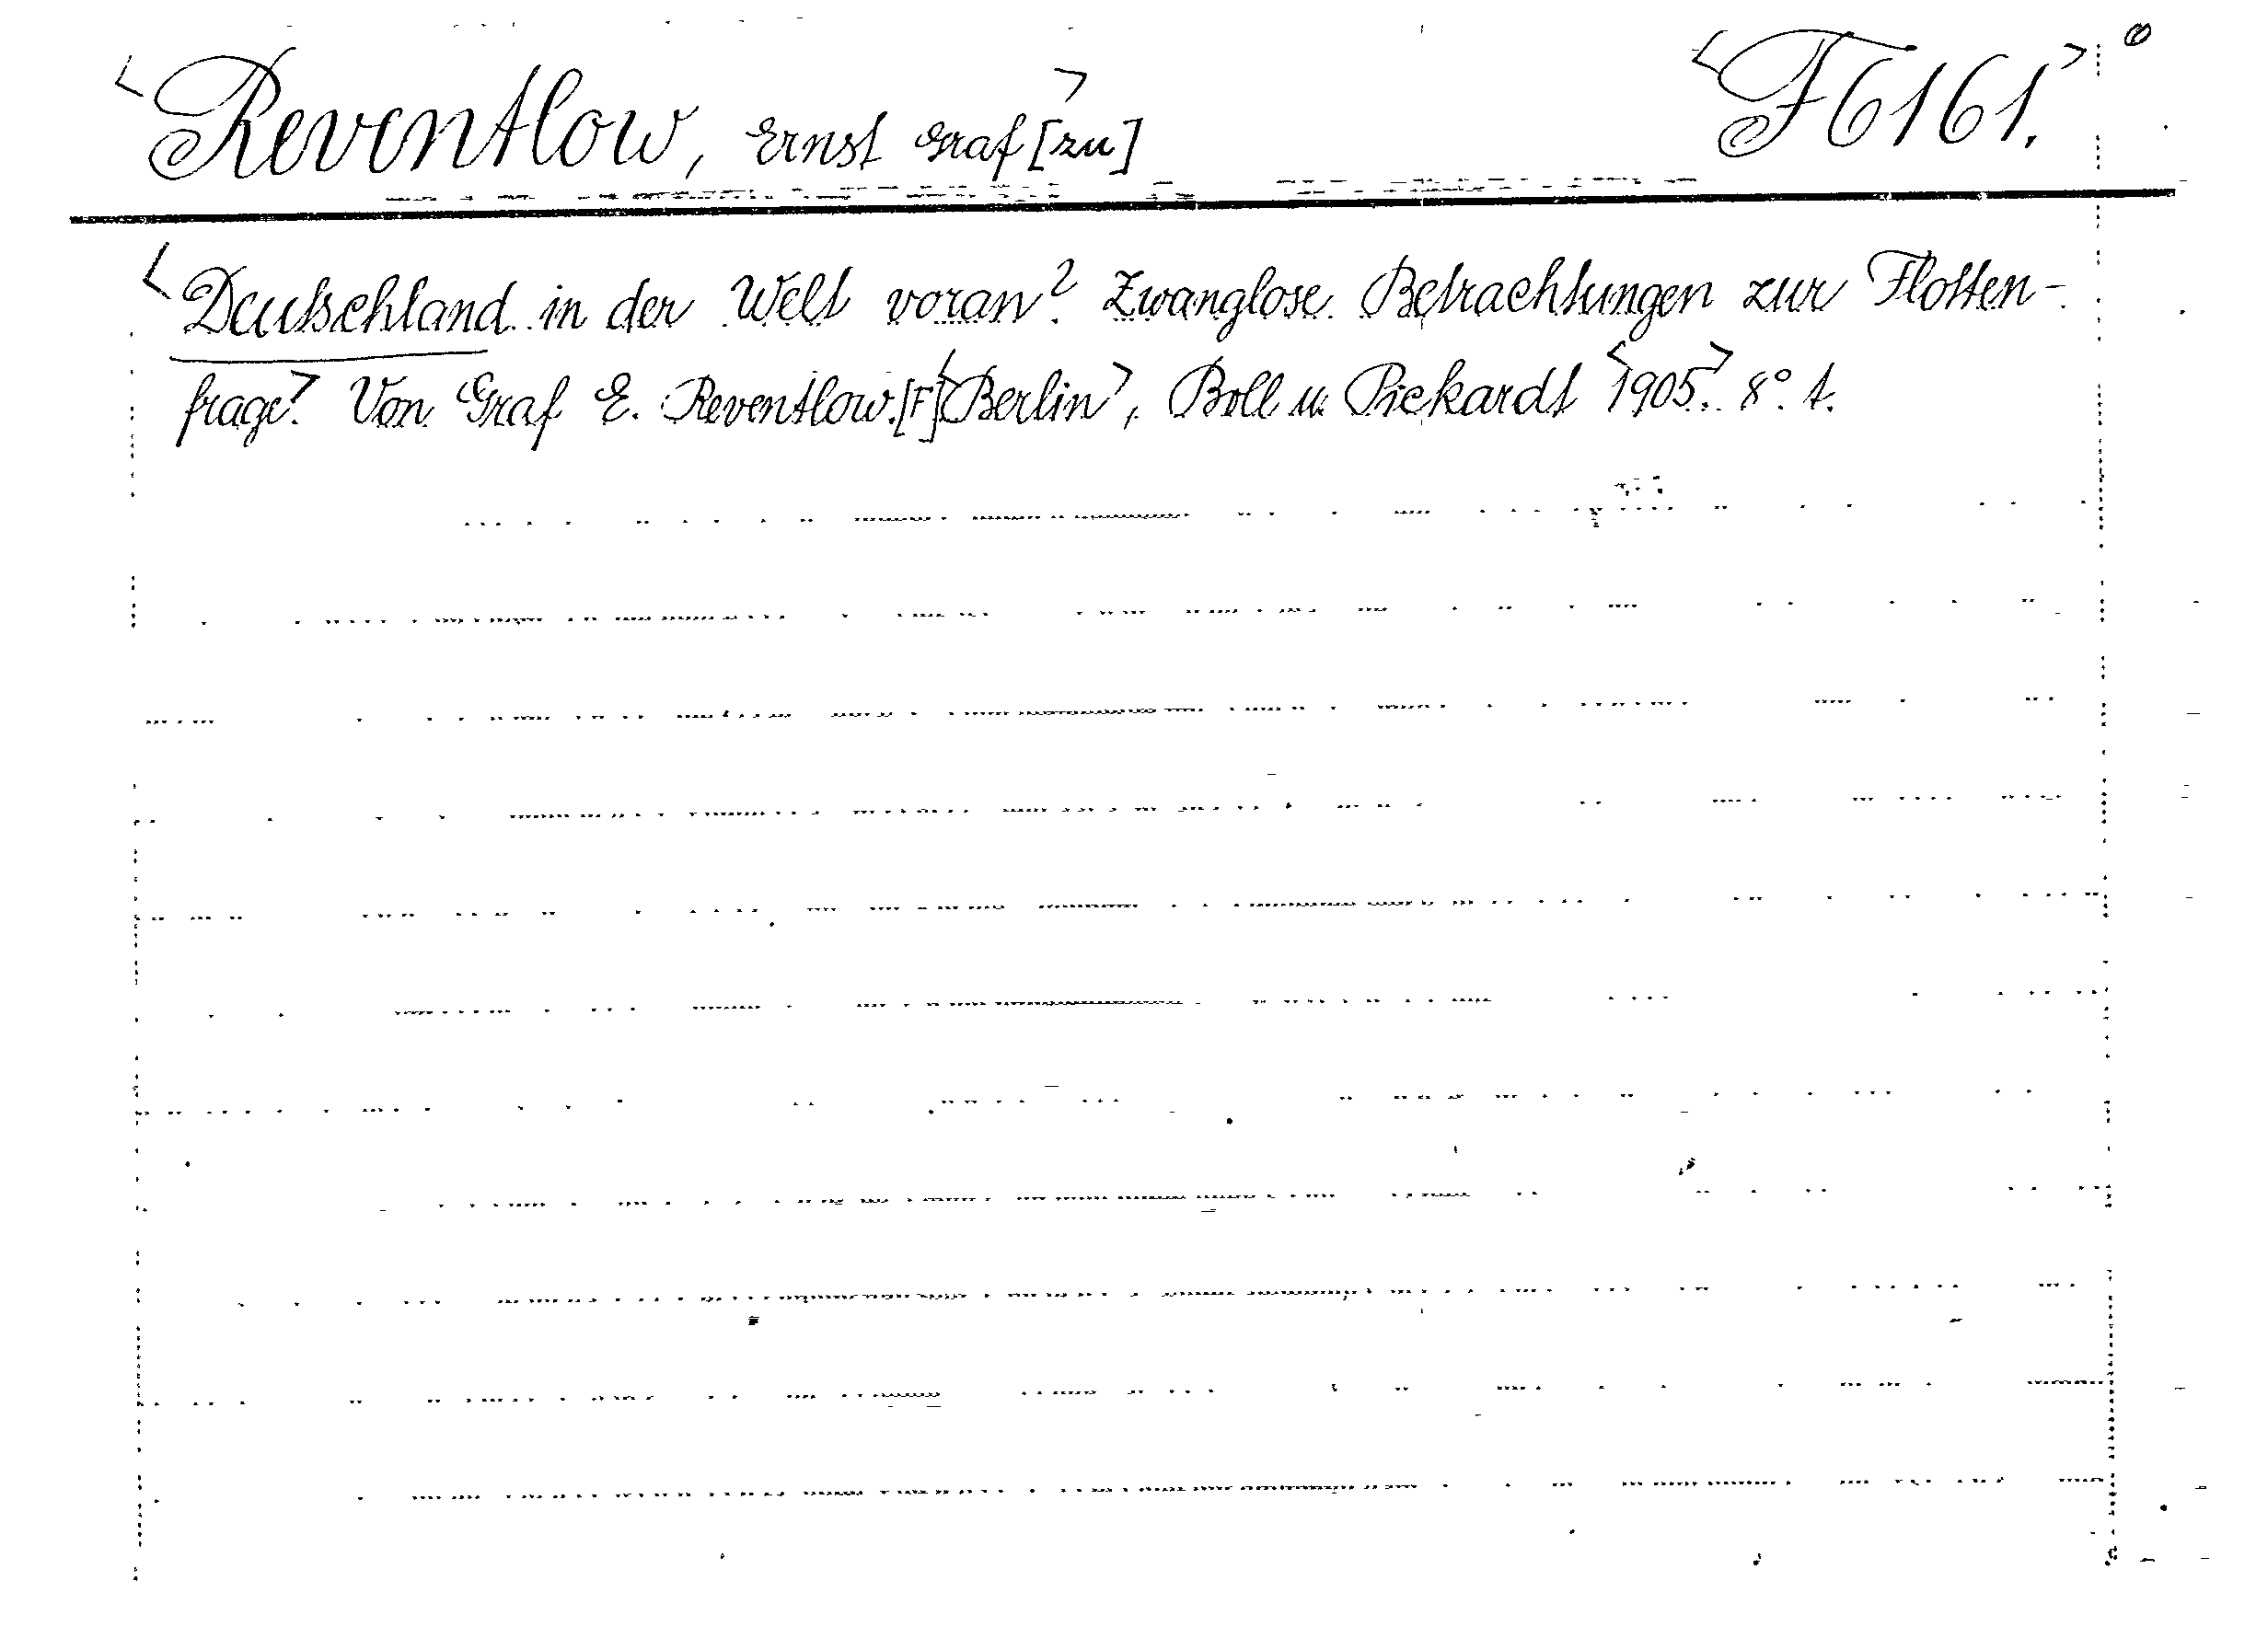 <Reventlow, Ernst Graf> [zu] <F6161.>
<Deutschland in der Welt voran? Zwanglose Betrachtungen zur Flotten-
frage.> Von Graf E. Reventlow. [F] <Berlin>, Boll u. Pickardt <1905.> 8°. t.